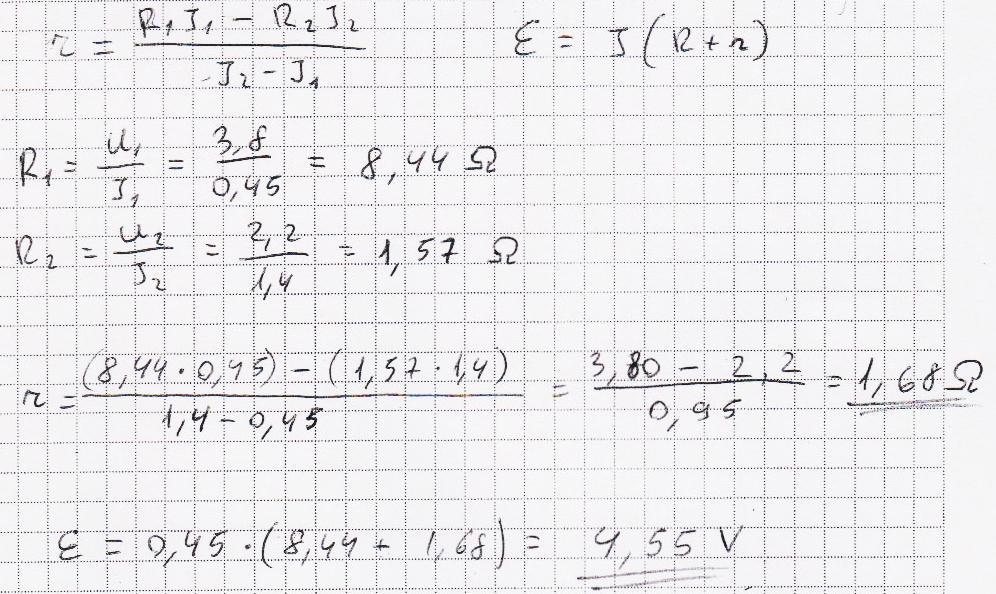 r = (R₁ I₁ − R₂ I₂) / (I₂ − I₁)    ε = I (R + r)
R₁ = U₁ / I₁ = 3,8 / 0,45 = 8,44 Ω
R₂ = U₂ / I₂ = 2,2 / 1,4 = 1,57 Ω
r = ((8,44 · 0,45) − (1,57 · 1,4)) / (1,4 − 0,45) = (3,80 − 2,2) / 0,95 = 1,68 Ω
ε = 0,45 · (8,44 + 1,68) = 4,55 V